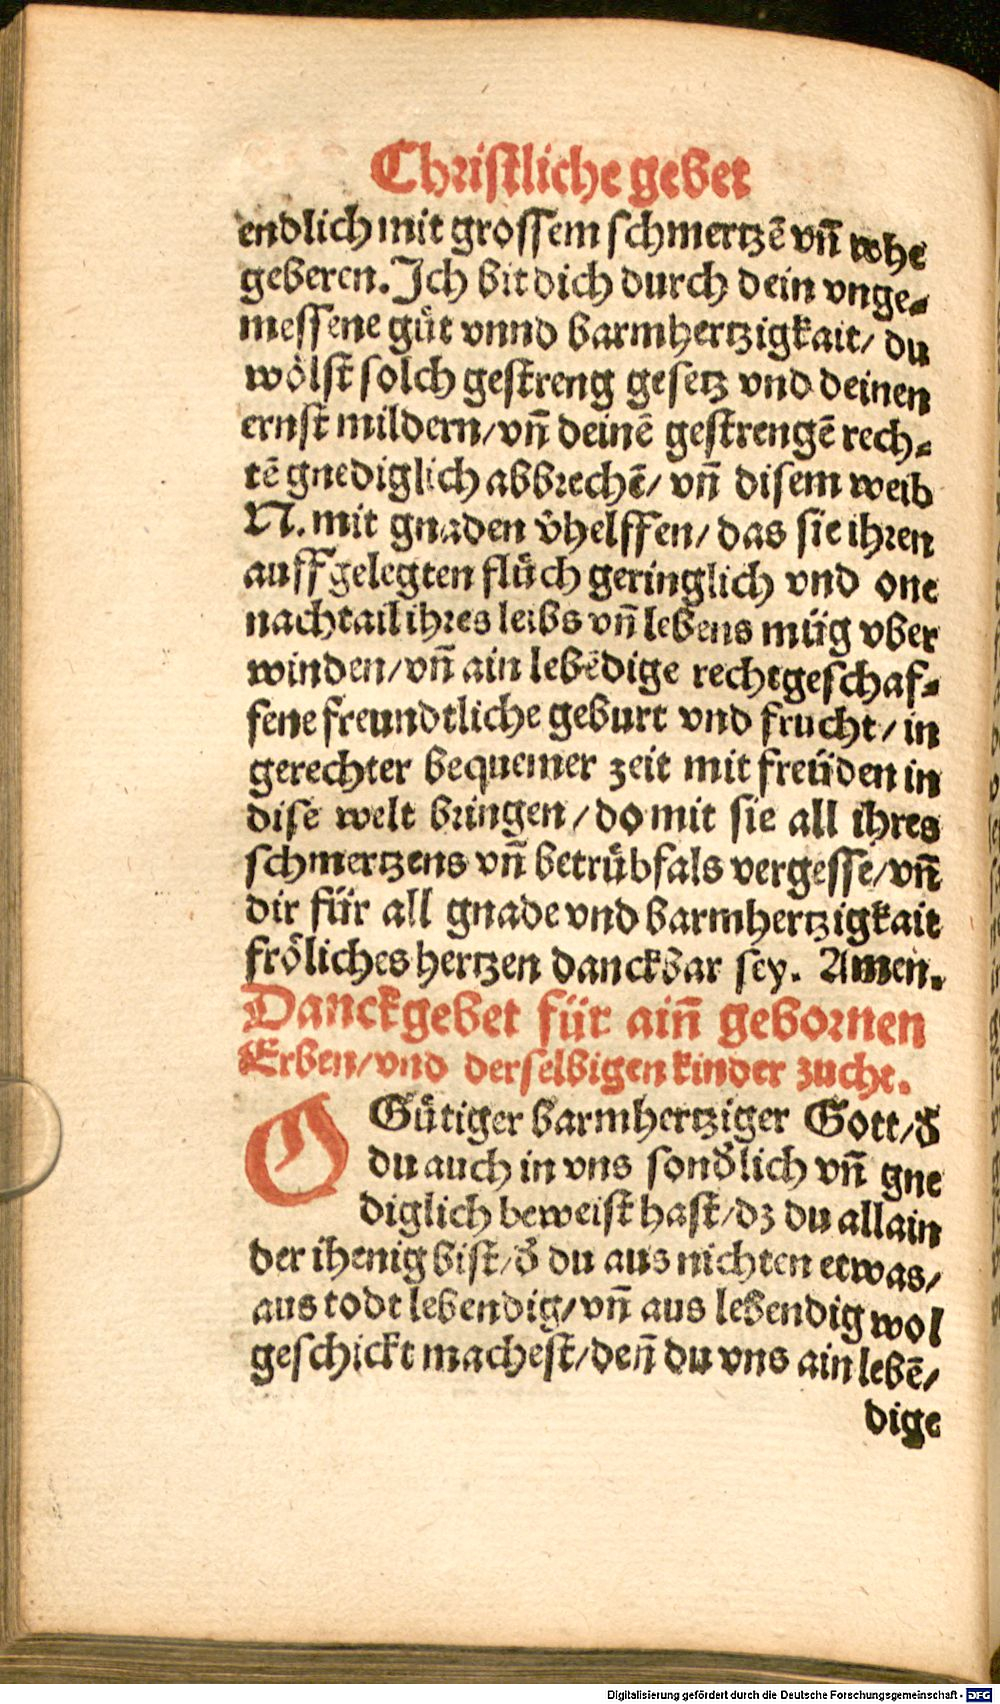 Christliche gebet
endlich mit grossem schmertzē vn̄ whe
geberen. Ich bit dich durch dein vnge-
messene guͤt vnnd barmhertzigkait/ du
woͤlst solch gestreng gesetz vnd deinen
ernst mildern/ vn̄ deinē gestrengē rech-
tē gnediglich abbrechē/ vn̄ disem weib
N. mit gnaden v̄helffen/ das sie ihren
auffgelegten fluͤch geringlich vnd one
nachtail ihres leibs vn̄ lebens muͤg vber
winden/ vn̄ ain lebēdige rechtgeschaf-
fene freundtliche geburt vnd frucht/ in
gerechter bequemer zeit mit freüden in
dise welt bringen/ domit sie all ihres
schmertzens vn̄ betruͤbsals vergesse/ vn̄
dir für all gnade vnd barmhertzigkait
froͤliches hertzen danckbar sey. Amen.
Danckgebet für ain̄ gebornen
Erben/ vnd derselbigen kinder zucht.
O Guͤtiger barmhertziger Gott/ d̄
du auch in vns sond̄lich vn̄ gne
diglich beweist hast/ dz du allain
der ihenig bist/ d̄ du aus nichten etwas/
aus todt lebendig/ vn̄ aus lebendig wol
geschickt machest/ den̄ du vns ain lebē/
dige
Digitalisierung gefördert durch die Deutsche Forschungsgemeinschaft - DFG